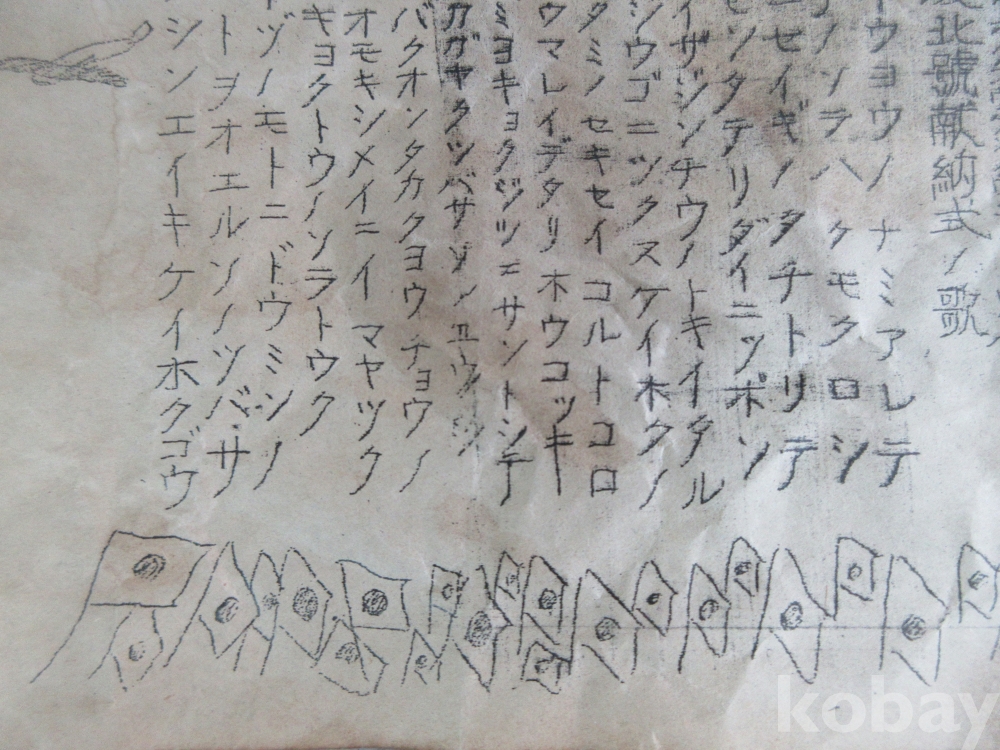 北號献納式ノ歌
ウヨウノ ナミアレテ
ノソラハ クモクロシ
セイギノ タチトリテ
タテリ ダイニッポン
イザジンチウノトキイタル
シウゴニツクスケイホクノ
タミノセキセイコルトコロ
ウマレイデタリホウコッキ
ミヨキョクジツニサントシテ
カガヤクツバサソノユウシ
バクオンタカクヨウチョウノ
オモキシメイニイマヤツク
キョクトウノソラトウク
ヅノモトニドウミンノ
トヲオエルソノツバサ
シンエイキケイホクゴウ
kobay